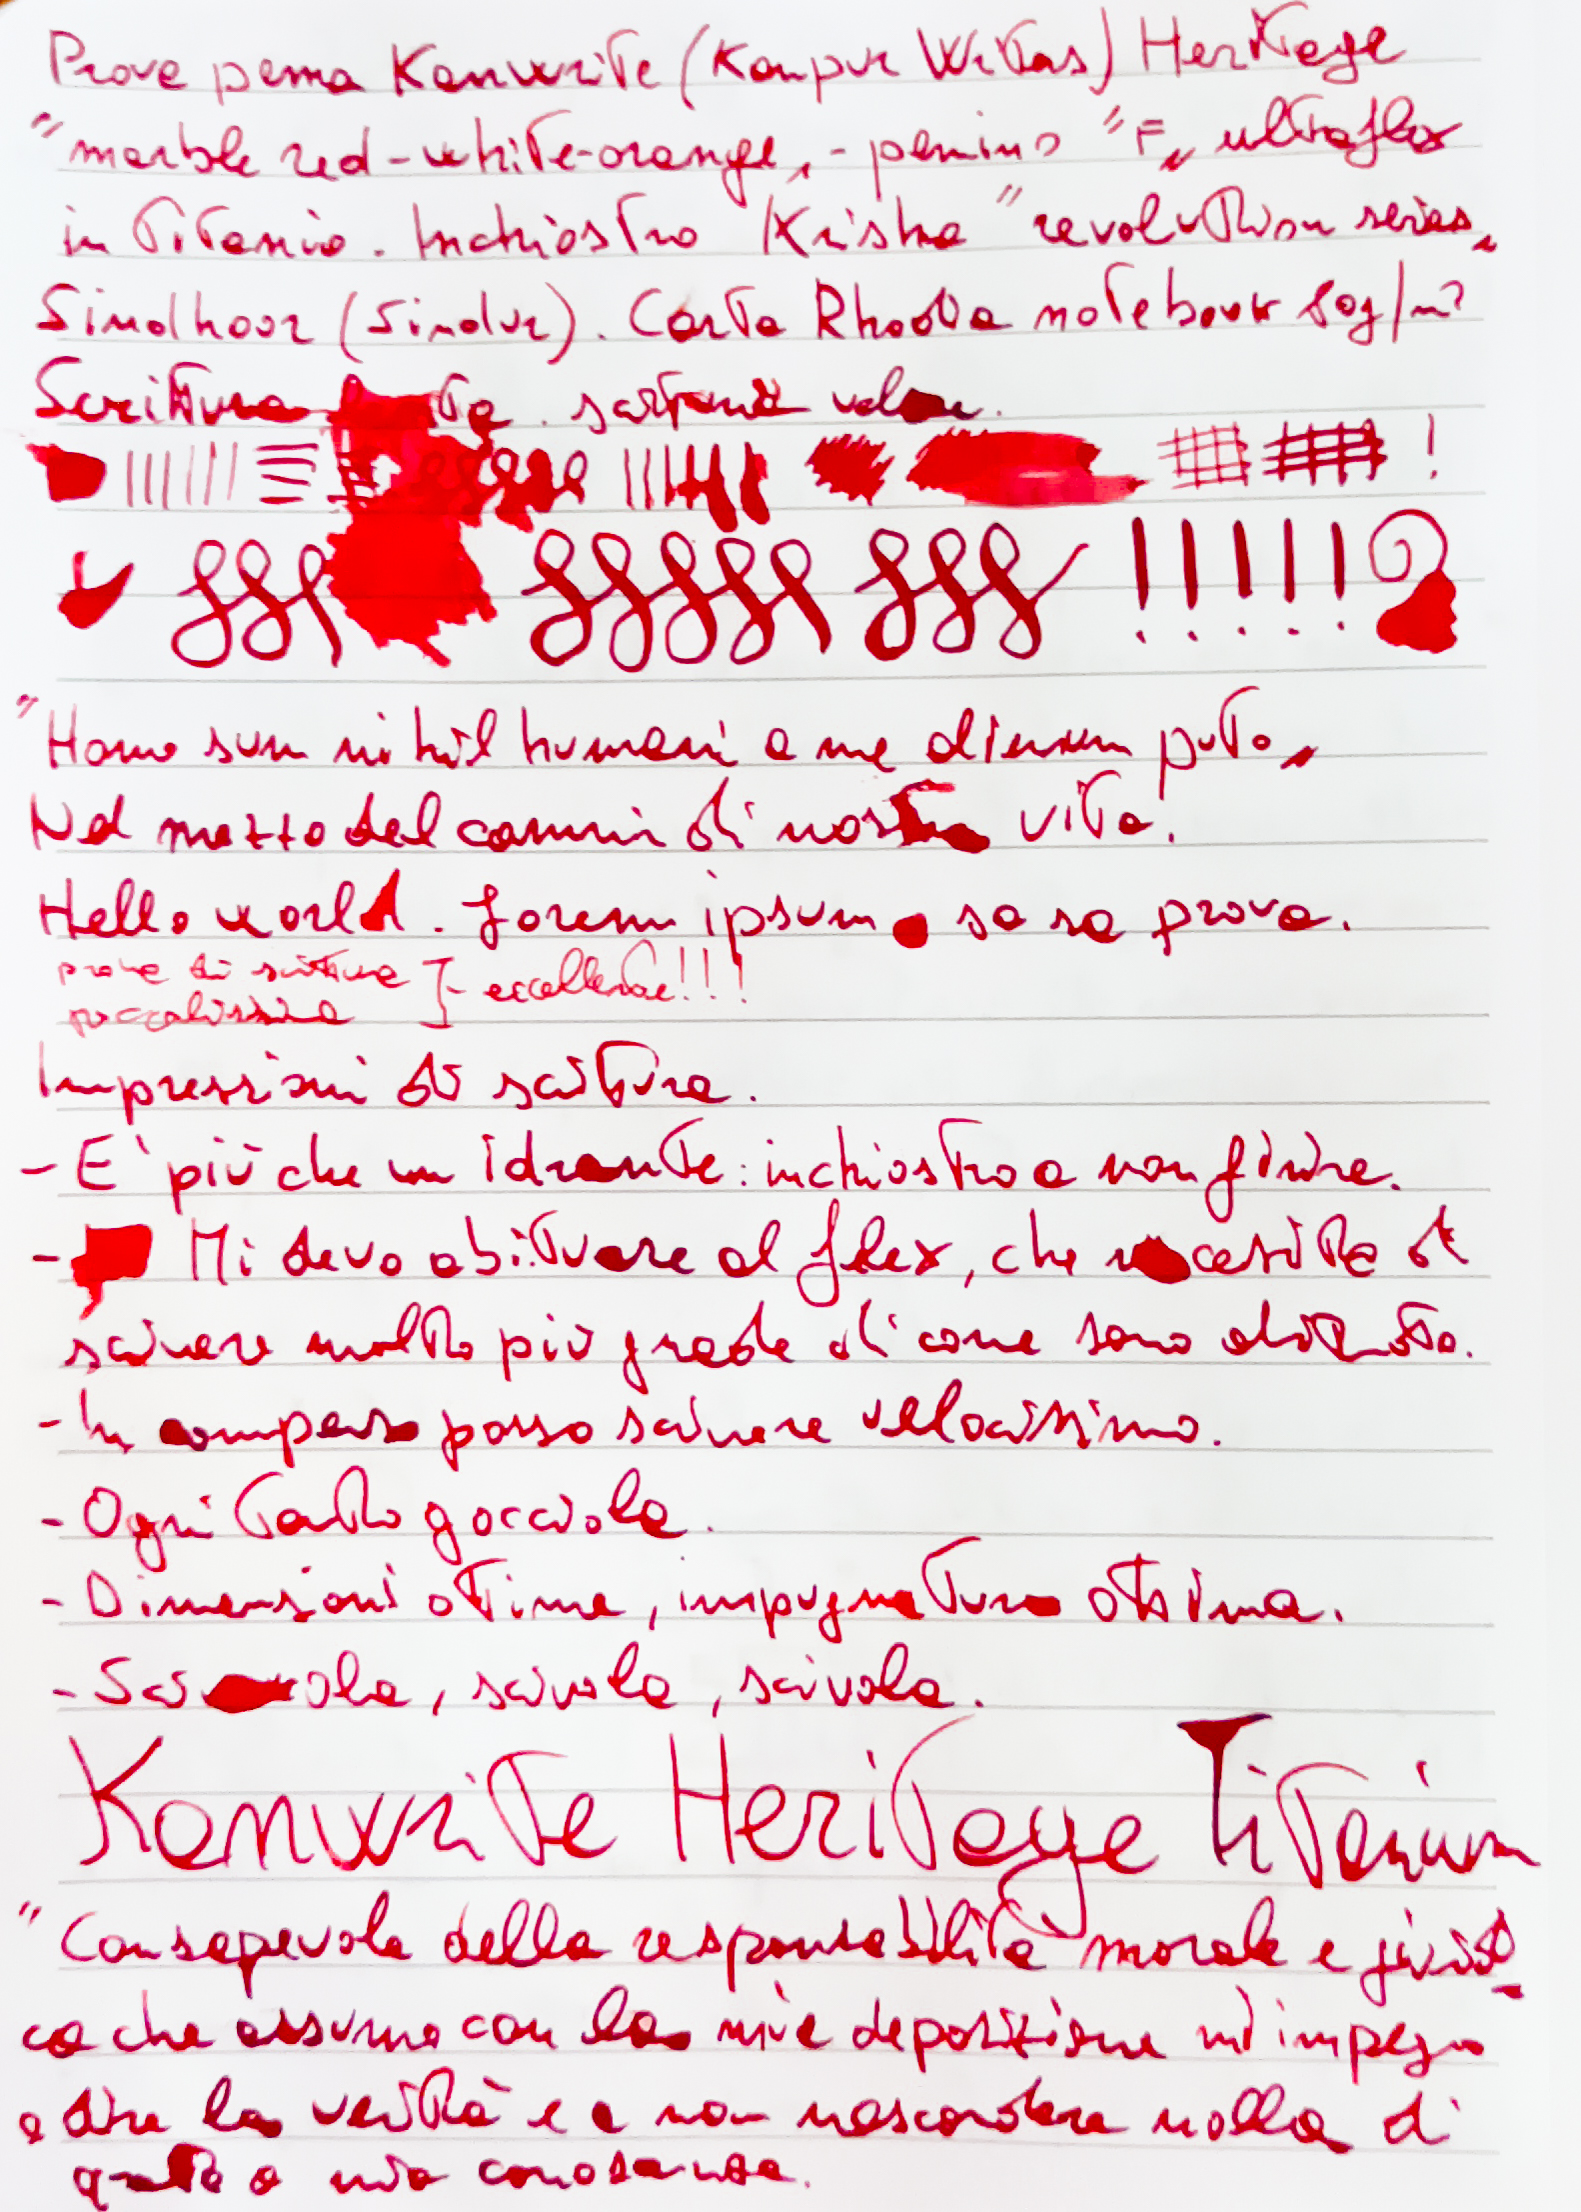 Prova penna Kanwrite (Kanpur Writers) Heritage
"marble red-white-orange" - pennino "F" ultraflex
in titanio. Inchiostro Krishna "revolution series"
Sindhoor (Sindur). Carta Rhodia notebook 80g/m²
Scrittura scrittura veloce.
"Homo sum nihil humani a me alienum puto"
Nel mezzo del cammin di nostra vita.
Hello world. Lorem ipsum sa sa prova.
prova di scrittura
piccolissima ]- eccellente!!!
Impressioni di scrittura.
- E' più che un idrante: inchiostro a non finire.
- Mi devo abituare al flex, che necessita di
scrivere molto più grande di come sono abituato.
- In compenso posso scrivere velocissimo.
- Ogni tanto gocciola.
- Dimensioni ottime, impugnatura ottima.
- Scivola, scivola, scivola.
Kanwrite Heritage Titanium
"Consapevole della responsabilità morale e giuridi-
ca che assumo con la mia deposizione mi impegno
a dire la verità e a non nascondere nulla di
quanto a mia conoscenza.